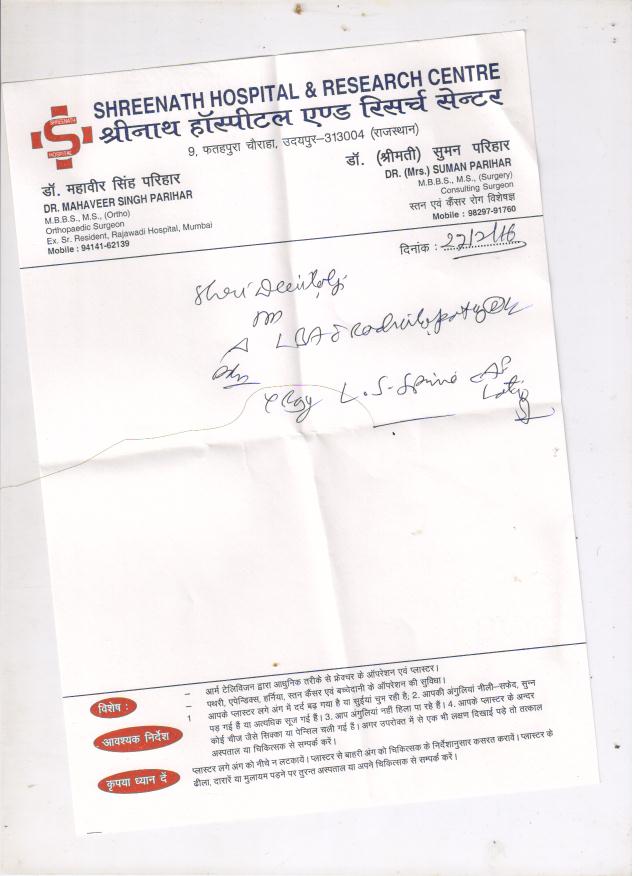 SHREENATH HOSPITAL & RESEARCH CENTRE
श्रीनाथ हॉस्पीटल एण्ड रिसर्च सेन्टर
SHREENATH
S
HOSPITAL
9, फतहपुरा चौराहा, उदयपुर–313004 (राजस्थान)
डॉ. महावीर सिंह परिहार
DR. MAHAVEER SINGH PARIHAR
M.B.B.S., M.S., (Ortho)
Orthopaedic Surgeon
Ex. Sr. Resident, Rajawadi Hospital, Mumbai
Mobile : 94141-62139
डॉ. (श्रीमती) सुमन परिहार
DR. (Mrs.) SUMAN PARIHAR
M.B.B.S., M.S., (Surgery)
Consulting Surgeon
स्तन एवं कैंसर रोग विशेषज्ञ
Mobile : 98297-91760
दिनांक : 27/2/16
Shri
LBA
Adv
X Ray L.S. Spine AP
Lat
विशेष :
– आर्म टेलिविजन द्वारा आधुनिक तरीके से फ्रेक्चर के ऑपरेशन एवं प्लास्टर।
– पथरी, एपेन्डिक्स, हर्निया, स्तन कैंसर एवं बच्चेदानी के ऑपरेशन की सुविधा।
आवश्यक निर्देश
1 आपके प्लास्टर लगे अंग में दर्द बढ़ गया है या सुईयां चुभ रही है; 2. आपकी अंगुलियां नीली–सफेद, सुन्न
पड़ गई हैं या अत्यधिक सूज गई हैं। 3. आप अंगुलियां नहीं हिला पा रहे हैं। 4. आपके प्लास्टर के अन्दर
कोई चीज जैसे सिक्का या पेन्सिल चली गई है। अगर उपरोक्त में से एक भी लक्षण दिखाई पड़े तो तत्काल
अस्पताल या चिकित्सक से सम्पर्क करें।
कृपया ध्यान दें
प्लास्टर लगे अंग को नीचे न लटकावे। प्लास्टर से बाहरी अंग को चिकित्सक के निर्देशानुसार कसरत करावें। प्लास्टर के
ढीला, दारारें या मुलायम पड़ने पर तुरन्त अस्पताल या अपने चिकित्सक से सम्पर्क करें।